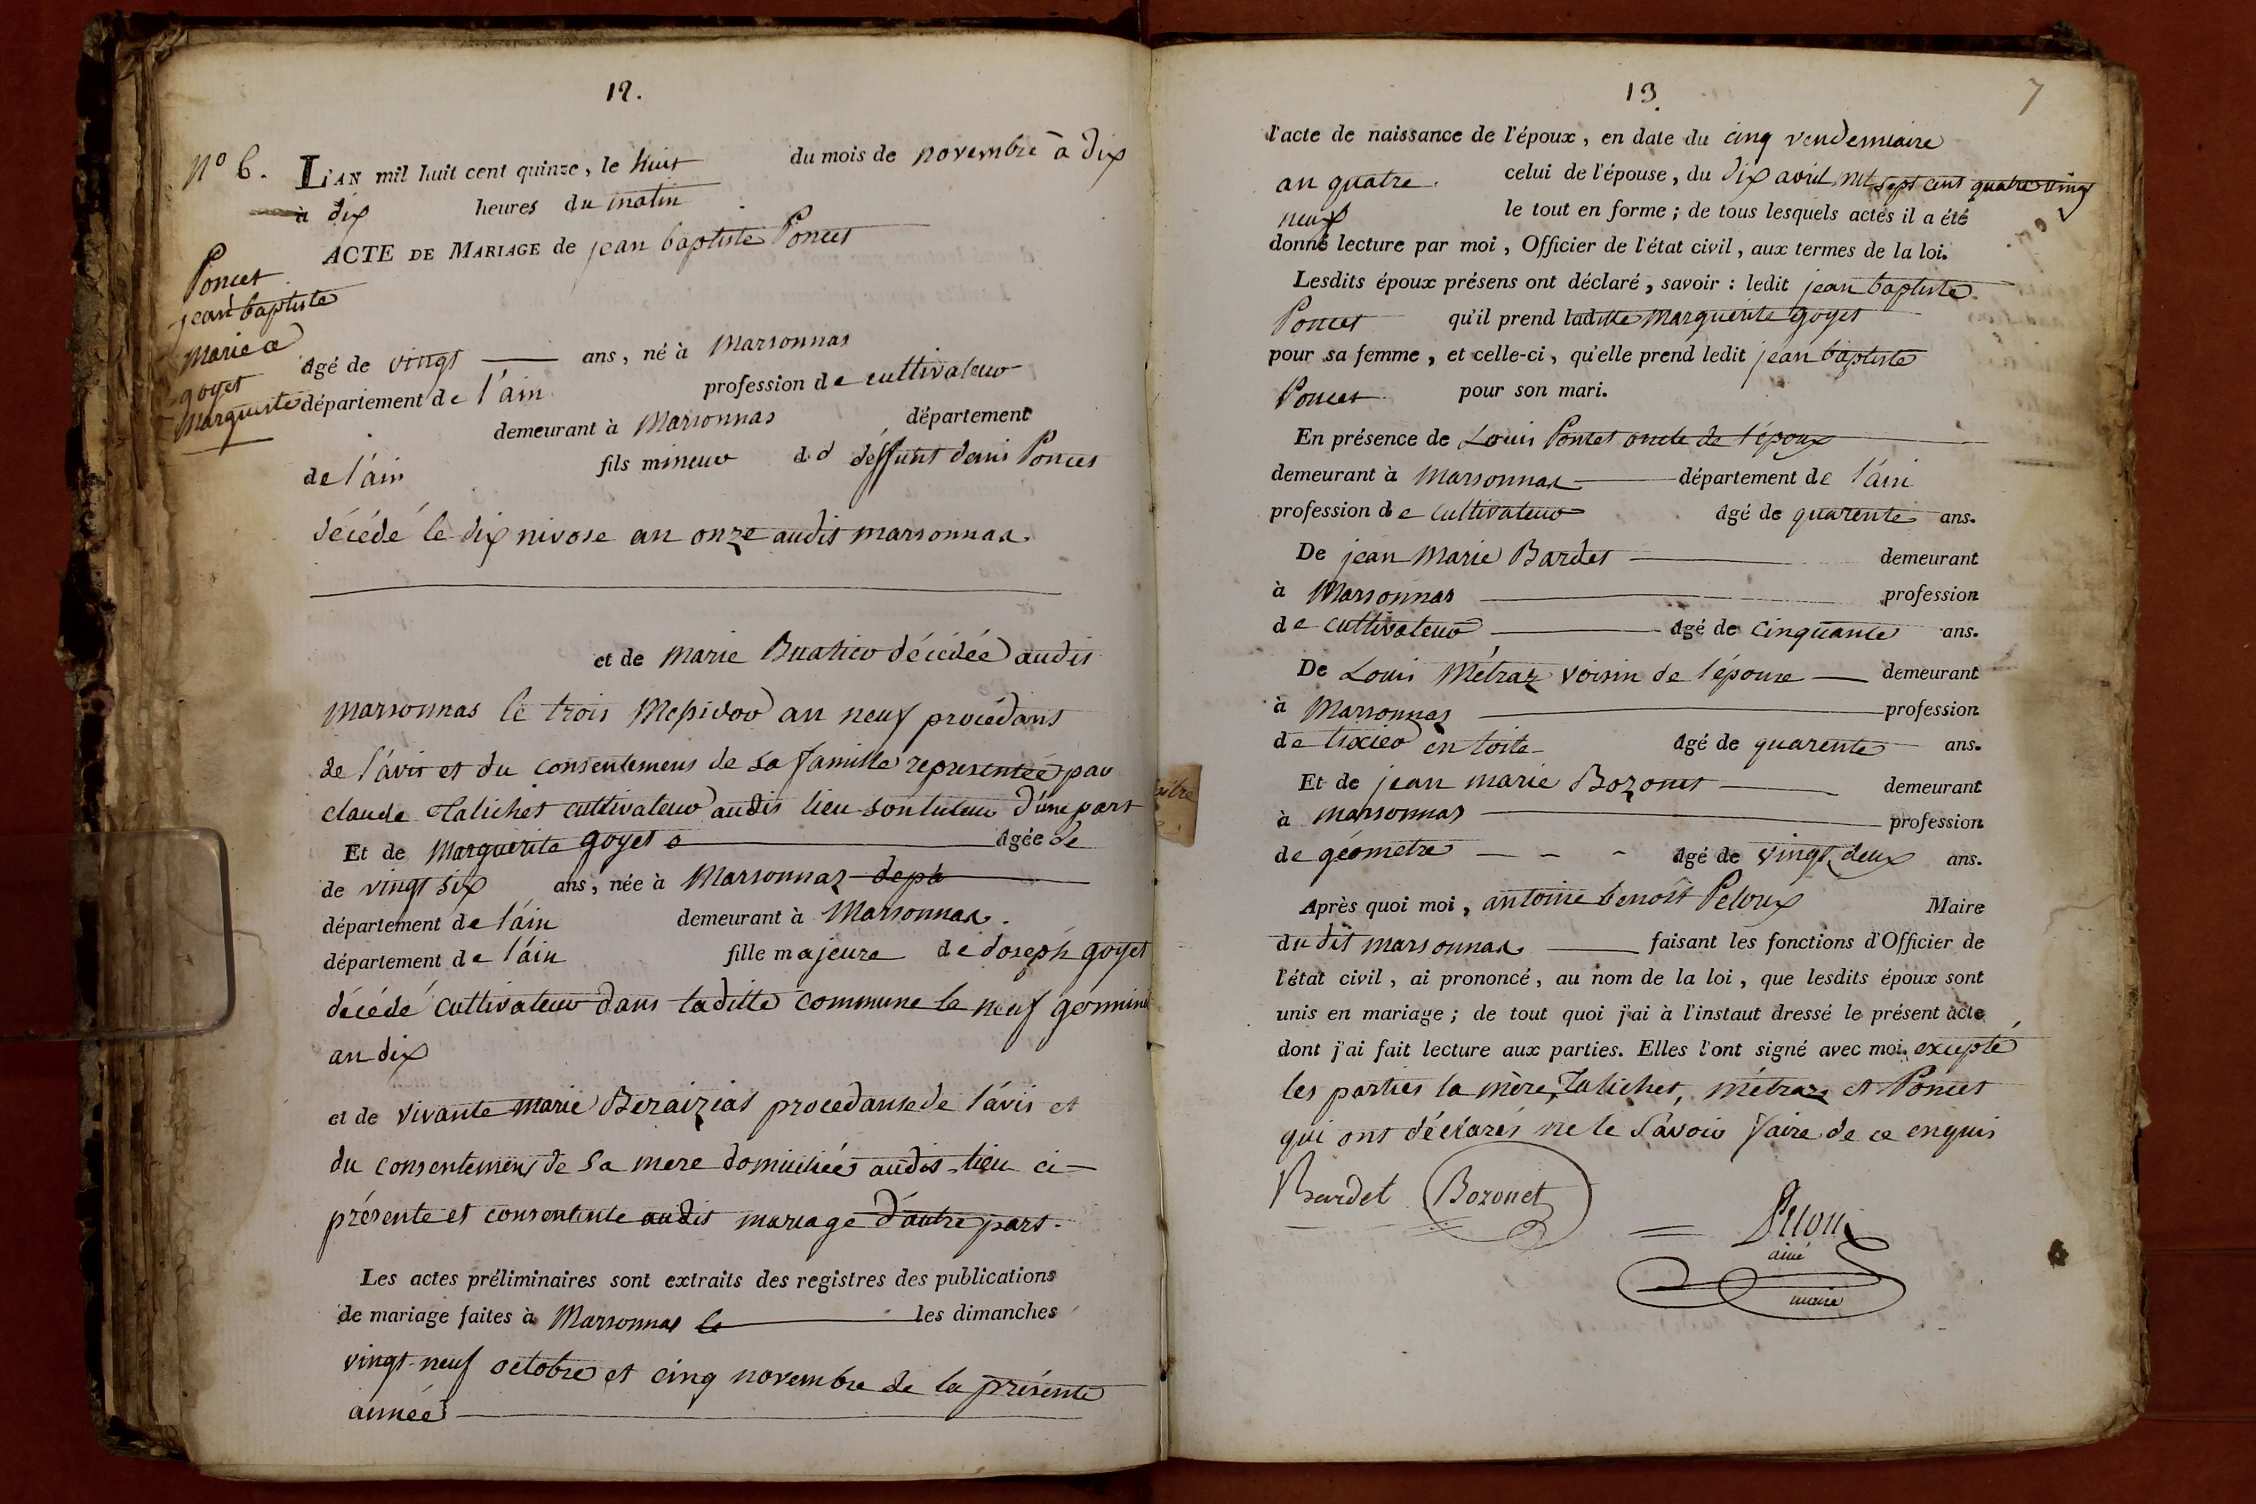 12.
N° 6. L'AN mil huit cent quinze, le huit du mois de novembre à dix
à dix heures du matin
ACTE DE MARIAGE de jean baptiste Poncet
Poncet
jean baptiste
Marié a
goyet
Marguerite
âgé de vingt ans, né à Marsonnas
département de l'ain profession de cultivateur
demeurant à Marsonnas département
de l'ain fils mineur de deffunt denis Poncet
décédé le dix nivose an onze audit marsonnas.
et de Marie Buatier décédée audit
marsonnas le trois Messidor an neuf procédant
de l'avis et du consentement de sa famille representée par
claude Talichet cultivateur audit lieu son tuteur d'une part
Et de Marguerite goyet âgée de
de vingt six ans, née à Marsonnas
département de l'ain demeurant à Marsonnas.
département de l'ain fille majeure de Joseph goyet
décédé cultivateur dans laditte commune le neuf germinal
an dix
et de vivante marie Beraizias procedante de l'avis et
du consentement de sa mere domiciliée audit lieu ci-
présente et consentente audit mariage d'autre part.
Les actes préliminaires sont extraits des registres des publications
de mariage faites à Marsonnas le les dimanches
vingt-neuf octobre et cinq novembre de la présente
année
13. 7
l'acte de naissance de l'époux, en date du cinq vendemiaire
an quatre. celui de l'épouse, du dix avril mil sept cent quatre vingt
neuf le tout en forme; de tous lesquels actes il a été
donné lecture par moi, Officier de l'état civil, aux termes de la loi.
Lesdits époux présens ont déclaré, savoir: ledit jean baptiste
Poncet qu'il prend laditte Marguerite goyet
pour sa femme, et celle-ci, qu'elle prend ledit jean baptiste
Poncet pour son mari.
En présence de Louis Poncet oncle de l'époux
demeurant à Marsonnas département de l'ain
profession de cultivateur âgé de quarente ans.
De jean Marie Bardet demeurant
à Marsonnas profession
de cultivateur âgé de cinquante ans.
De Louis Métraz voisin de l'épouse demeurant
à Marsonnas profession
de tixier en toile âgé de quarente ans.
Et de jean marie Bozonet demeurant
à marsonnas profession
de géometre âgé de vingt deux ans.
Après quoi moi, antoine benoît Peloux Maire
dudit marsonnas faisant les fonctions d'Officier de
l'état civil, ai prononcé, au nom de la loi, que lesdits époux sont
unis en mariage; de tout quoi j'ai à l'instaut dressé le présent acte
dont j'ai fait lecture aux parties. Elles l'ont signé avec moi. excepté
les parties la mère, Talichet, métraz et Poncet
qui ont déclarés ne le savoir faire de ce enquis
Bardet Bozonet Peloux
ainé
maire